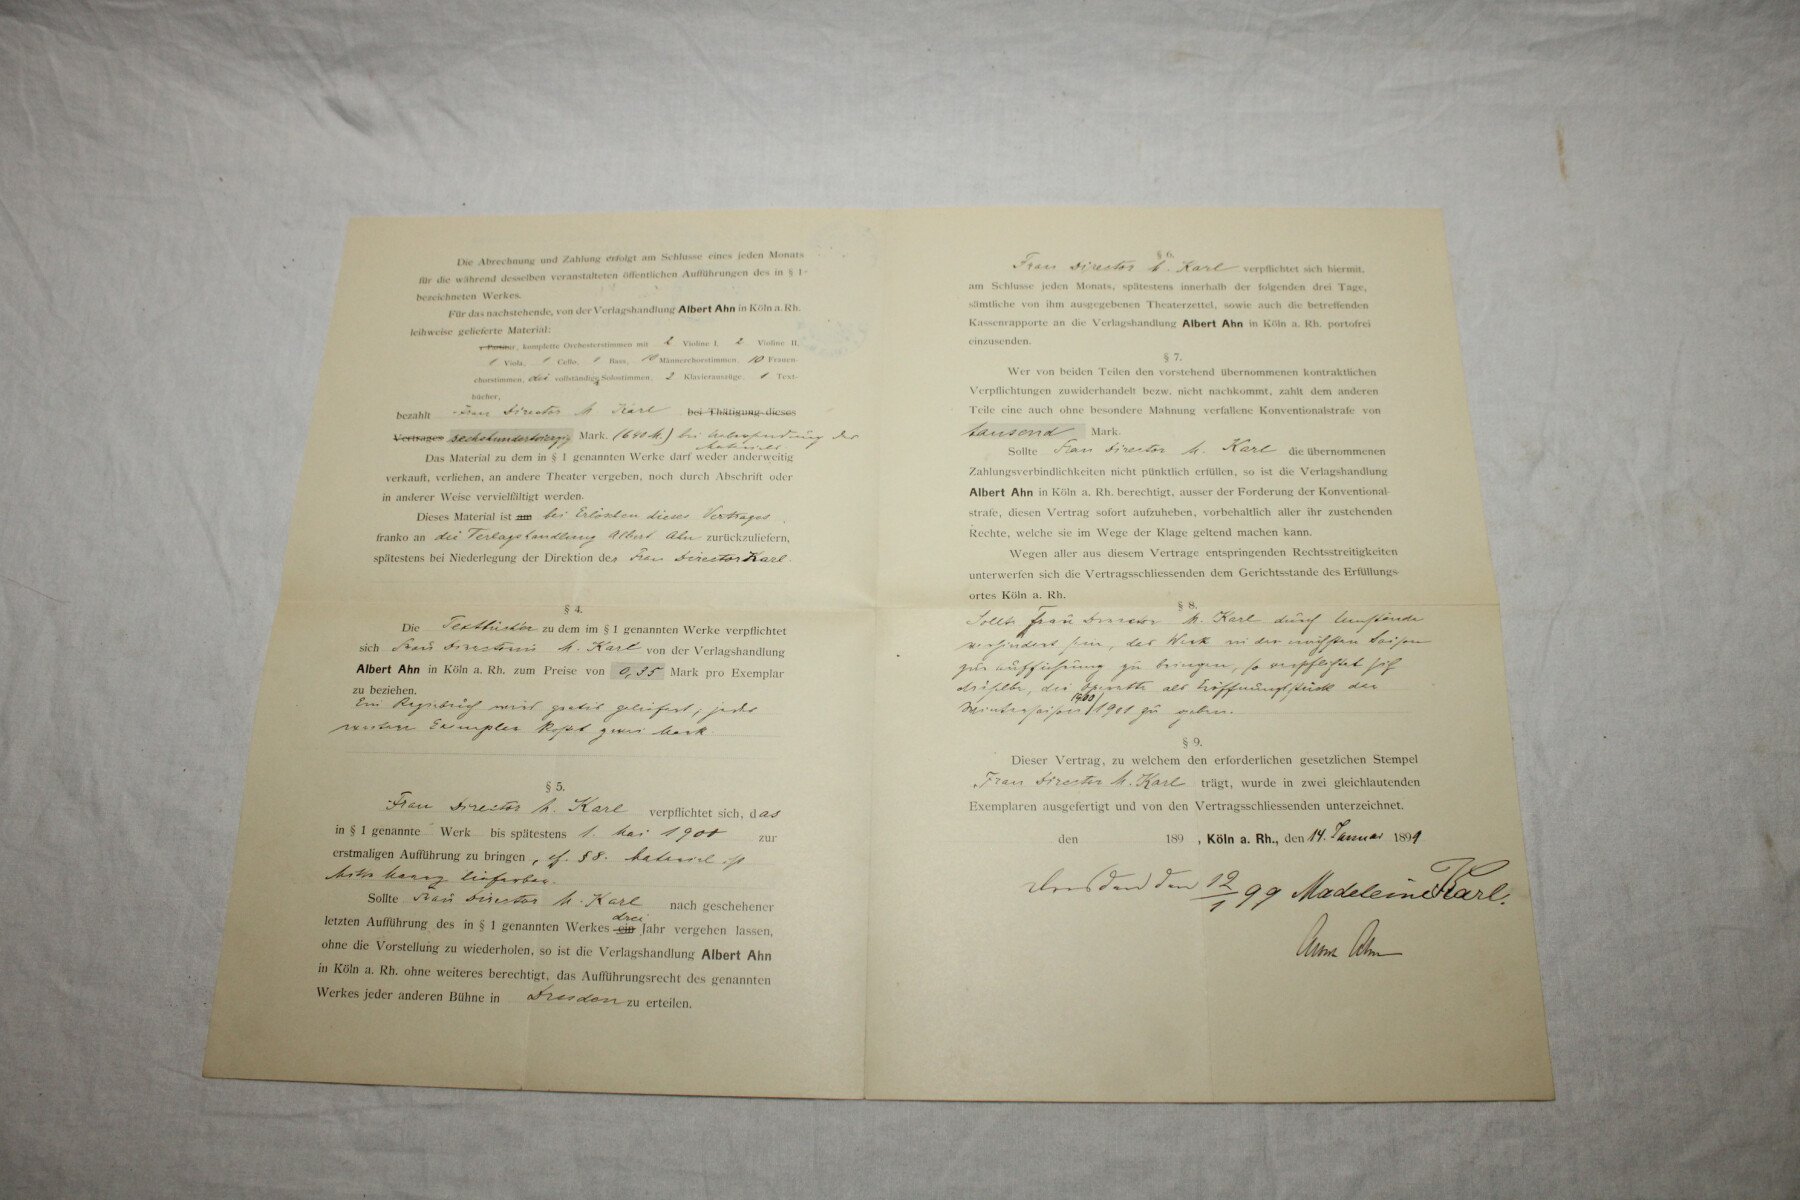 Die Abrechnung und Zahlung erfolgt am Schlusse eines jeden Monats
für die während desselben veranstalteten öffentlichen Aufführungen des in § 1
bezeichneten Werkes.
Für das nachstehende, von der Verlagshandlung Albert Ahn in Köln a. Rh.
leihweise gelieferte Material:
1 Partitur, komplette Orchesterstimmen mit 2 Violine I, 2 Violine II,
1 Viola, 1 Cello, 1 Bass, 10 Männerchorstimmen, 10 Frauen-
chorstimmen, die vollständige Solostimmen, 2 Klavierauszüge, 1 Text-
bücher,
bezahlt Frau Director M. Karl bei Thätigung dieses
Vertrages sechshundertvierzig Mark. (640 M.) bei Uebersendung der
Materials
Das Material zu dem in § 1 genannten Werke darf weder anderweitig
verkauft, verliehen, an andere Theater vergeben, noch durch Abschrift oder
in anderer Weise vervielfältigt werden.
Dieses Material ist am bei Erlöschen dieses Vertrages
franko an die Verlagshandlung Albert Ahn zurückzuliefern,
spätestens bei Niederlegung der Direktion der Frau Director Karl.
§ 4.
Die Textbücher zu dem im § 1 genannten Werke verpflichtet
sich Frau Directorin M. Karl von der Verlagshandlung
Albert Ahn in Köln a. Rh. zum Preise von 0,35 Mark pro Exemplar
zu beziehen.
Ein Regiebuch wird gratis geliefert, jedes
weitere Exemplar kostet zwei Mark.
§ 5.
Frau Director M. Karl verpflichtet sich, das
in § 1 genannte Werk bis spätestens 1. Mai 1900 zur
erstmaligen Aufführung zu bringen, cf. § 8. Material ist
lieferbar.
Sollte Frau Director M. Karl nach geschehener
letzten Aufführung des in § 1 genannten Werkes ein drei Jahr vergehen lassen,
ohne die Vorstellung zu wiederholen, so ist die Verlagshandlung Albert Ahn
in Köln a. Rh. ohne weiteres berechtigt, das Aufführungsrecht des genannten
Werkes jeder anderen Bühne in Dresden zu erteilen.
§ 6.
Frau Director M. Karl verpflichtet sich hiermit,
am Schlusse jeden Monats, spätestens innerhalb der folgenden drei Tage,
sämtliche von ihm ausgegebenen Theaterzettel, sowie auch die betreffenden
Kassenrapporte an die Verlagshandlung Albert Ahn in Köln a. Rh. portofrei
einzusenden.
§ 7.
Wer von beiden Teilen den vorstehend übernommenen kontraktlichen
Verpflichtungen zuwiderhandelt bezw. nicht nachkommt, zahlt dem anderen
Teile eine auch ohne besondere Mahnung verfallene Konventionalstrafe von
tausend Mark.
Sollte Frau Director M. Karl die übernommenen
Zahlungsverbindlichkeiten nicht pünktlich erfüllen, so ist die Verlagshandlung
Albert Ahn in Köln a. Rh. berechtigt, ausser der Forderung der Konventional-
strafe, diesen Vertrag sofort aufzuheben, vorbehaltlich aller ihr zustehenden
Rechte, welche sie im Wege der Klage geltend machen kann.
Wegen aller aus diesem Vertrage entspringenden Rechtsstreitigkeiten
unterwerfen sich die Vertragsschliessenden dem Gerichtsstande des Erfüllungs-
ortes Köln a. Rh.
§ 8.
Sollte Frau Director M. Karl durch Umstände
verhindert sein, das Werk in der nächsten Saison
zur Aufführung zu bringen, so verpflichtet sich
dieselbe, die Operette als Eröffnungsstück der
Wintersaison 1900/1901 zu geben.
§ 9.
Dieser Vertrag, zu welchem den erforderlichen gesetzlichen Stempel
Frau Director M. Karl trägt, wurde in zwei gleichlautenden
Exemplaren ausgefertigt und von den Vertragsschliessenden unterzeichnet.
den 189 , Köln a. Rh., den 14. Januar 1899
Dresden den 12/1 99 Madeleine Karl.
Ahn